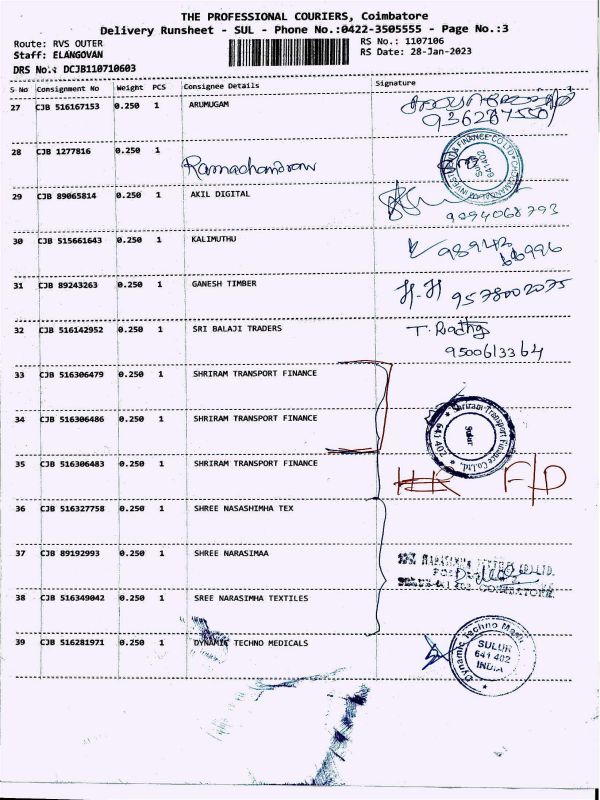 THE PROFESSIONAL COURIERS, Coimbatore
Delivery Runsheet - SUL - Phone No.:0422-3505555 - Page No.:3
Route: RVS OUTER
RS No.: 1107106
Staff: ELANGOVAN
RS Date: 28-Jan-2023
DRS No.: DCJB110710603
S No Consignment No Weight PCS Consignee Details Signature
27 CJB 516167153 0.250 1 ARUMUGAM
28 CJB 1277816 0.250 1 Ramachandran
29 CJB 89065814 0.250 1 AKIL DIGITAL
9094068793
30 CJB 515661643 0.250 1 KALIMUTHU
98943
66996
31 CJB 89243263 0.250 1 GANESH TIMBER H.H 9578002075
32 CJB 516142952 0.250 1 SRI BALAJI TRADERS T.
9500613364
33 CJB 516306479 0.250 1 SHRIRAM TRANSPORT FINANCE
34 CJB 516306486 0.250 1 SHRIRAM TRANSPORT FINANCE
Shriram Transport Finance Co.Ltd. 641 402
Sulur
35 CJB 516306483 0.250 1 SHRIRAM TRANSPORT FINANCE F/D
36 CJB 516327758 0.250 1 SHREE NASASHIMHA TEX
37 CJB 89192993 0.250 1 SHREE NARASIMAA
38 CJB 516349042 0.250 1 SREE NARASIMHA TEXTILES
39 CJB 516281971 1 0.250 DYNAMIC TECHNO MEDICALS
Dynamic Techno Medi
SULUR
641 402
INDIA